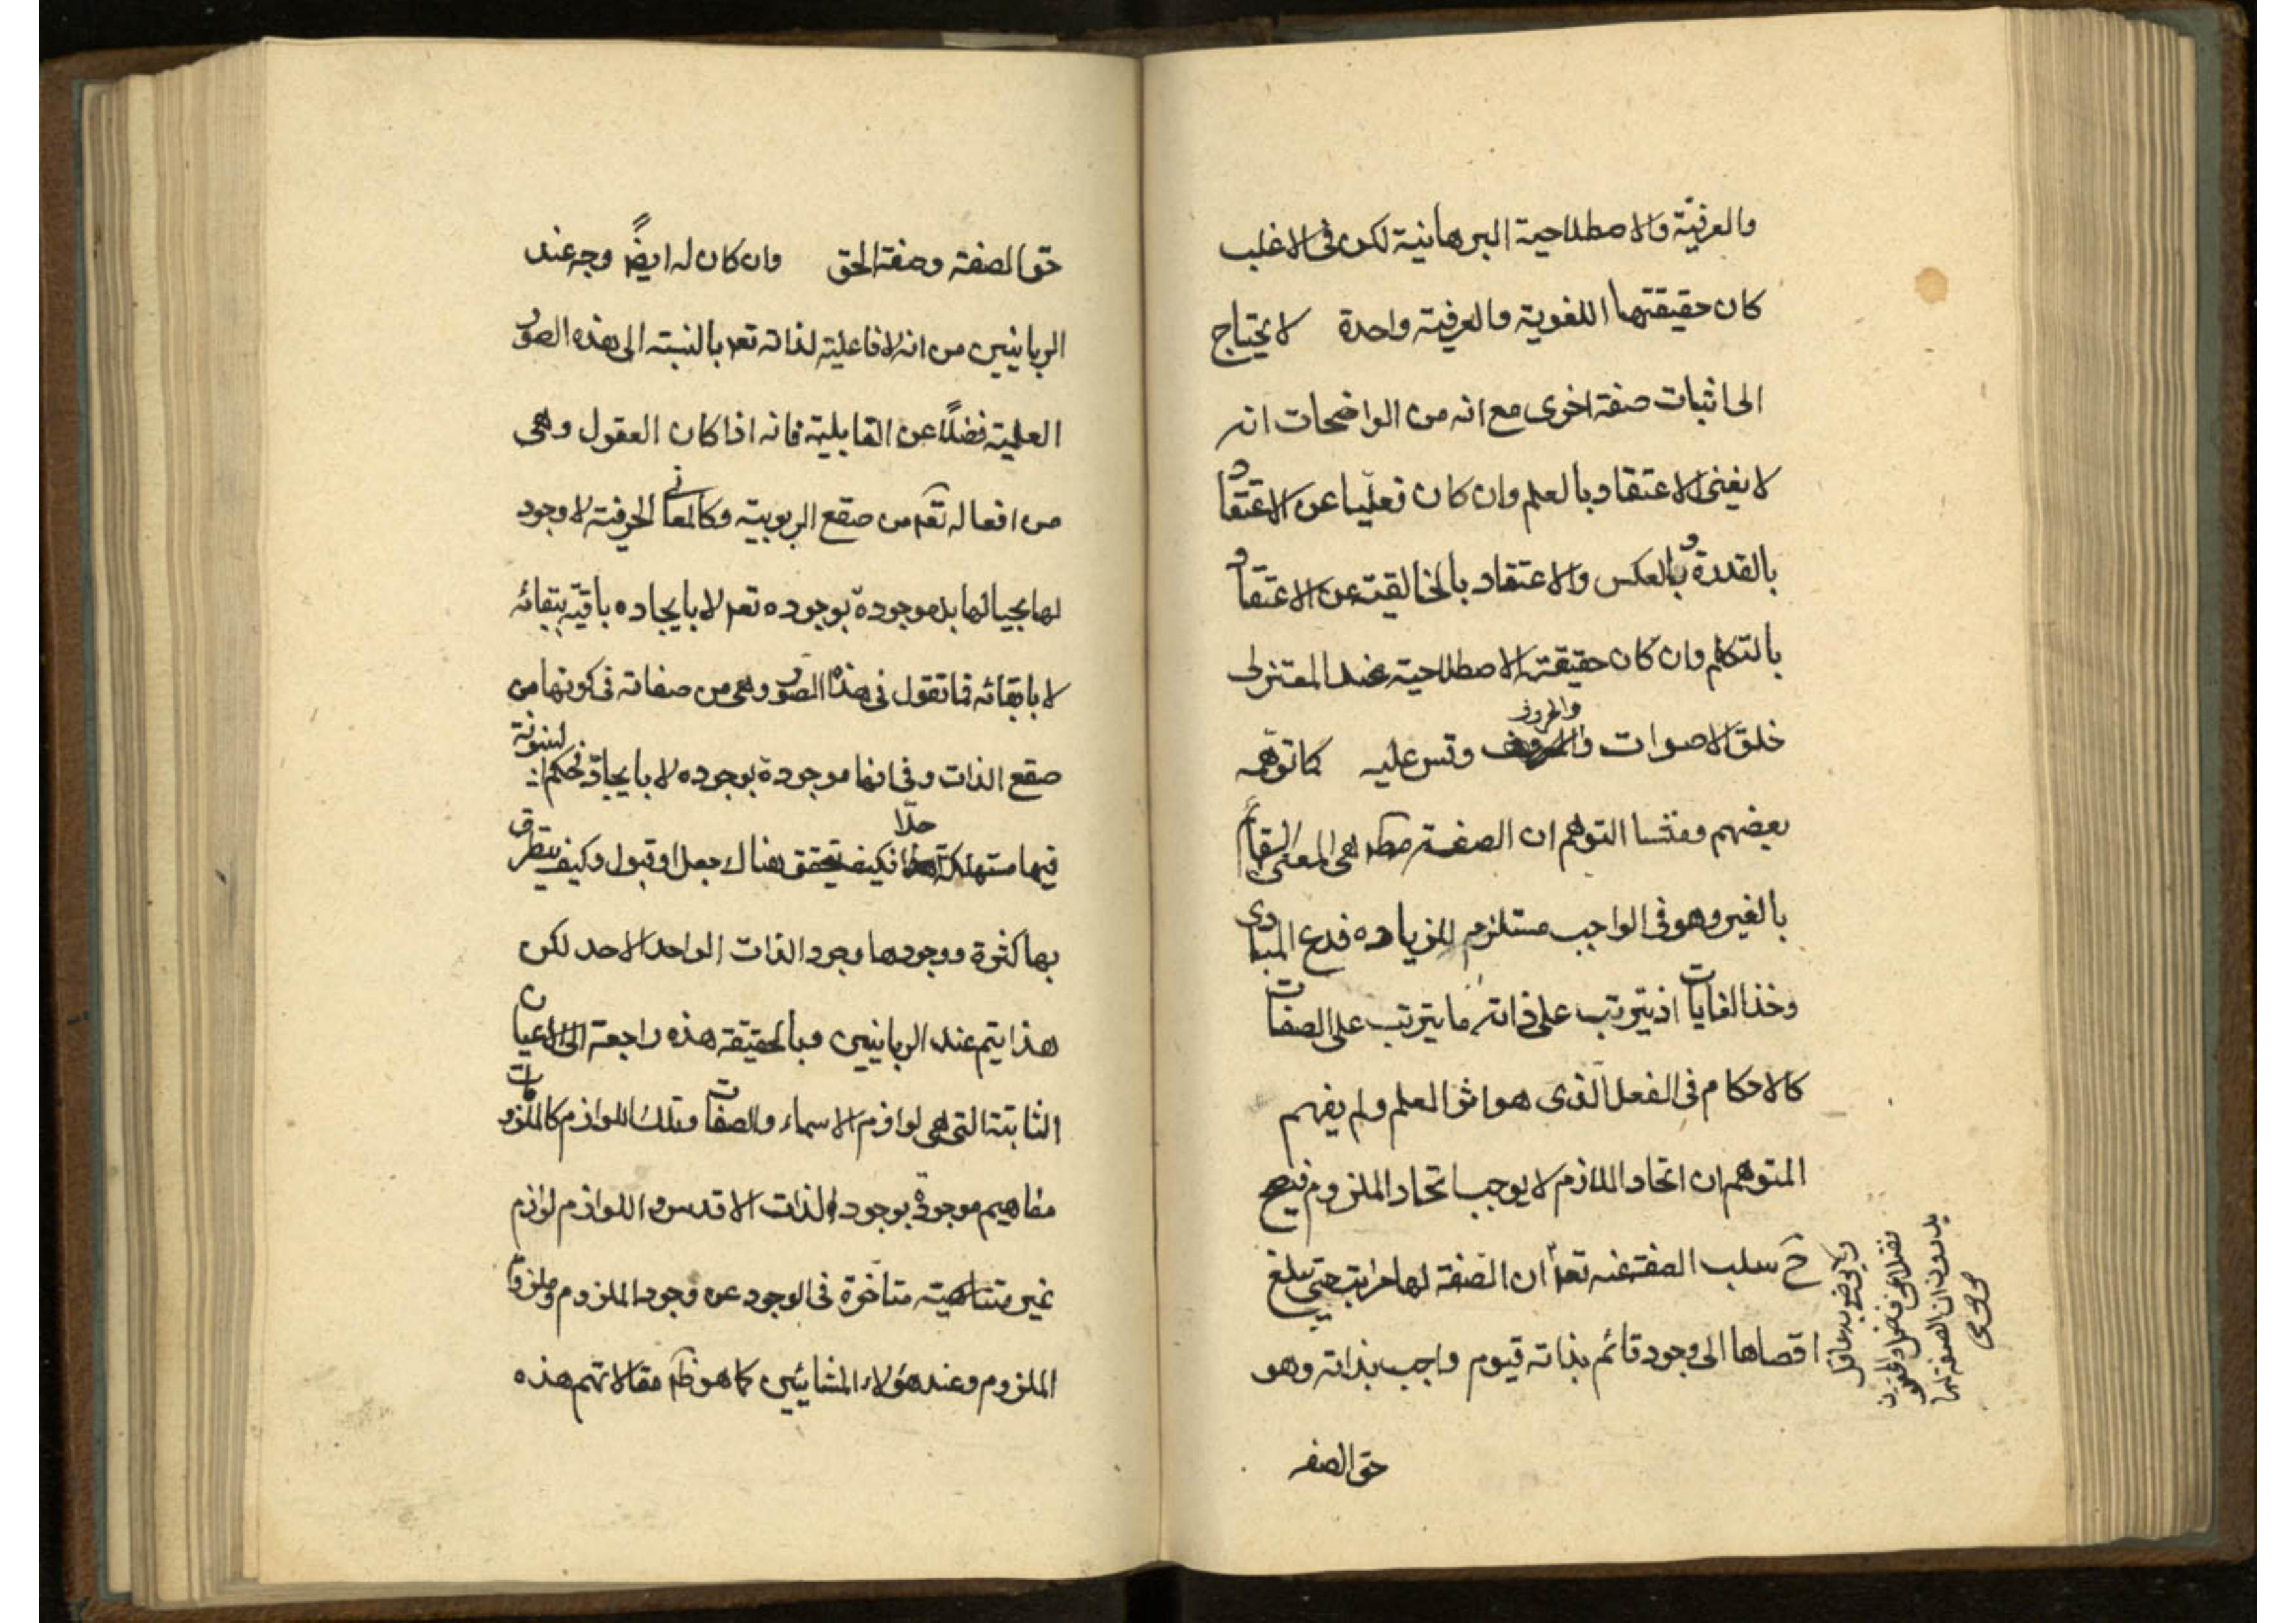 والعرفيّة والاصطلاحية البرهانية لكن فى الاغلب
كان حقيقتها اللغوية والعرفية واحدة لا يحتاج
الى اثبات صفة اخرى مع انه من الواضحات انه
لا يغنى الاعتقاد بالعلم وان كان فعليّا عن الاعتقاد
بالقدرة وبالعكس والاعتقاد بالخالقية عن الاعتقاد
بالتكلم وان كان حقيقته الاصطلاحية عند المعتزلى
خلق الاصوات والحروف وقس عليه كما توهمه
بعضهم ومنشا التوهم ان الصفة مط هى المعنى القائم
بالغير وهو فى الواجب مستلزم للزياده فدع المبادى
وخذ الغايات اذ يترتب على ذاته ما يترتب على الصفات
كالاحكام فى الفعل الذى هو اثر العلم ولم يفهم
المتوهم ان اتحاد اللازم لا يوجب اتحاد الملزوم فيصح
ح سلب الصفة عنه تعم ان الصفة لها مراتب حتى يبلغ
اقصاها الى وجود قائم بذاته قيوم واجب بذاته وهو
حق الصفه
ولا يرضى به عاقل
فضلا عن فاضل
يدرون ان الصفة لها
حق الصفة وصفة الحق وان كان له ايضً وجه عند
الربانيين من انه لا فاعلية لذاته تعم بالنسبة الى هذه الصور
العلمية فضلًا عن القابلية فانه اذا كان العقول وهى
من افعاله تعم من صقع الربوبية وكالمعانى الحرفية لا وجود
لها بحيالها بل موجودة بوجوده تعم لا بايجاده باقية ببقائه
لا بابقائه فما تقول فى هذه الصور وهى من صفاته فى كونها من
صقع الذات وفى انها موجودة بوجوده لا بايجاده فحكم السوائية
فيها مستهلكة جدّا فكيف يتحقق هناك جعل او قبول وكيف يتطرق
بها كثرة ووجودها وجود الذات الواحد الاحد لكن
هذا يتم عند الربانيين وبالحقيقة هذه راجعة الى الاعيان
الثابتة التى هى لوازم الاسماء والصفات وتلك اللوازم كالملزومات
مفاهيم موجودة بوجود الذات الاقدس واللوازم لوازم
غير متناهية متاخرة فى الوجود عن وجود الملزوم وملزوم
الملزوم وعند هؤلاء المشائيين كما هو ظم مقالاتهم هذه